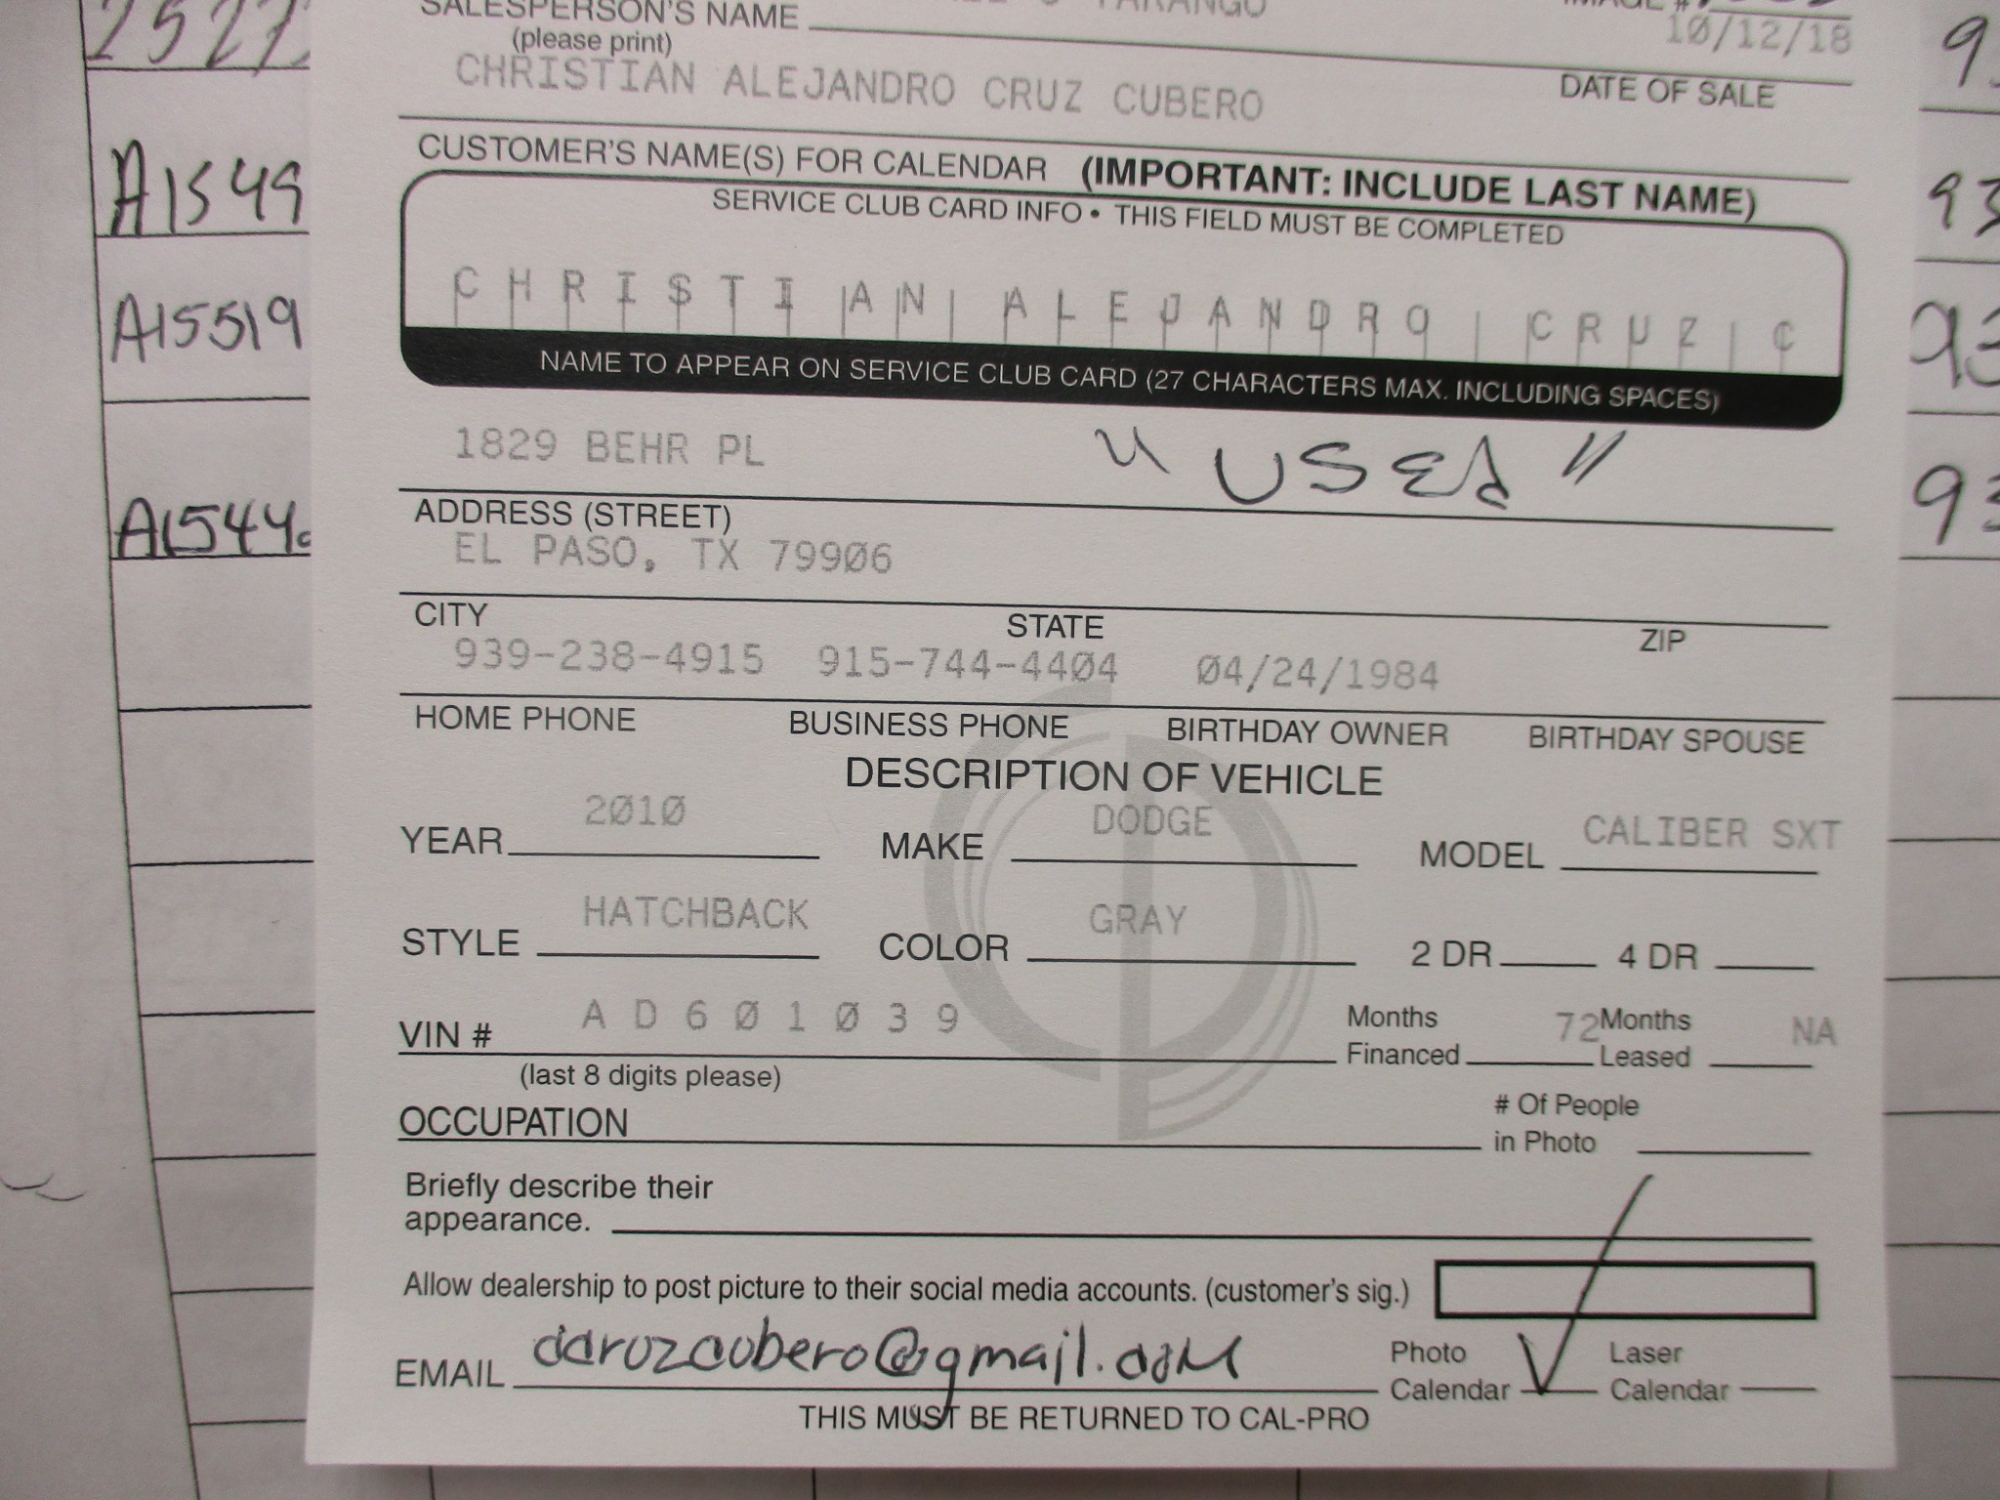 2527
SALESPERSON'S NAME
(please print)
10/12/18
CHRISTIAN ALEJANDRO CRUZ CUBERO
DATE OF SALE
CUSTOMER'S NAME(S) FOR CALENDAR (IMPORTANT: INCLUDE LAST NAME)
SERVICE CLUB CARD INFO • THIS FIELD MUST BE COMPLETED
A1549
CHRISTIAN ALEJANDRO CRUZ C
NAME TO APPEAR ON SERVICE CLUB CARD (27 CHARACTERS MAX. INCLUDING SPACES)
A15519
1829 BEHR PL "USEd"
ADDRESS (STREET)
EL PASO, TX 79906
CITY STATE ZIP
939-238-4915 915-744-4404 04/24/1984
HOME PHONE BUSINESS PHONE BIRTHDAY OWNER BIRTHDAY SPOUSE
DESCRIPTION OF VEHICLE
YEAR 2010 MAKE DODGE MODEL CALIBER SXT
STYLE HATCHBACK COLOR GRAY 2 DR 4 DR
VIN # AD601039 Months Financed 72 Months Leased NA
(last 8 digits please)
OCCUPATION # Of People in Photo
Briefly describe their
appearance.
Allow dealership to post picture to their social media accounts. (customer's sig.)
EMAIL @gmail.com Photo Calendar Laser Calendar
THIS MUST BE RETURNED TO CAL-PRO